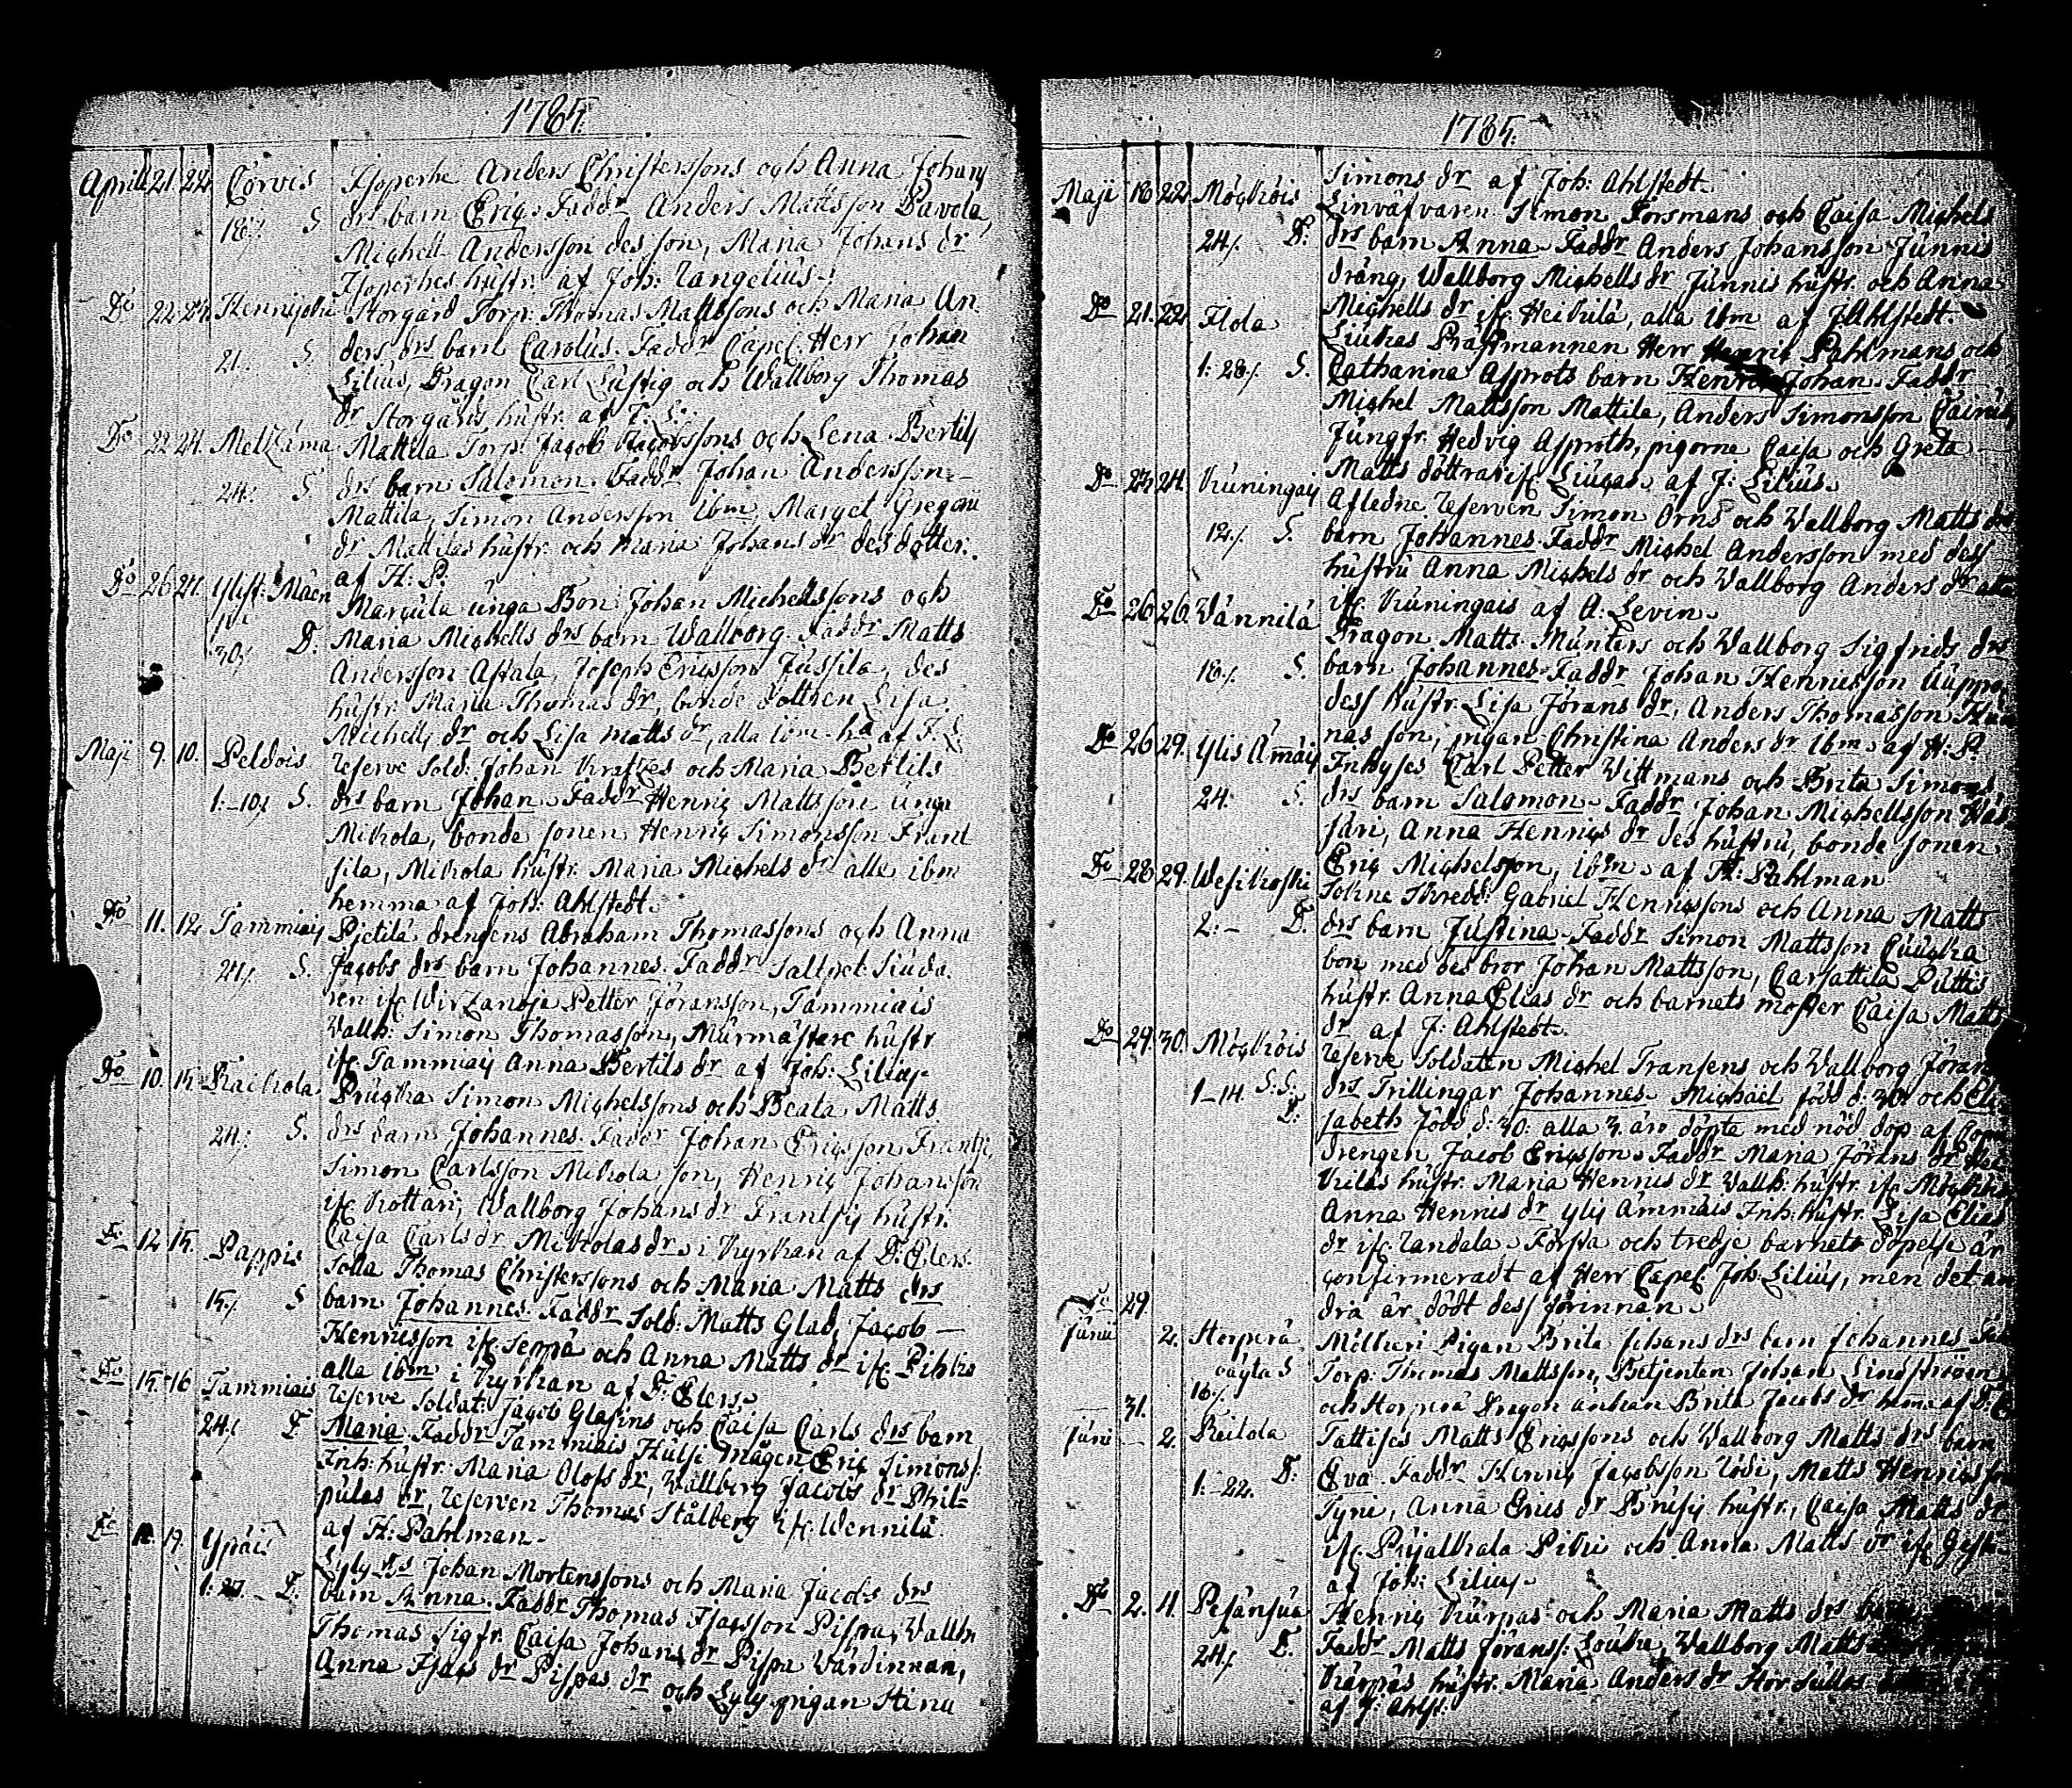 1785.
Aprill 21. 22. Corvis Isoperhe Anders Christerssons och Anna Johans
18./. S drs barn Eric. Faddr Anders Mattsson Pavola,
Michell Andersson des son, Maria Johans dr
Isoperhes hustr. af Joh: Tangelius.
Do 22. 24. Hennijoki Storgård Torp. Thomas Mattssons och Maria An-
21. S. ders drs barn Carolus. Faddr Capel. Herr Johan
Lilius, Dragon Carl Lustig och Wallborg Thomas
dr Storgårds hustr. af J. L.
Do 22 24. Metzäma Mattila Torp. Jacob Jacobssons och Lena Bertils
24. S drs barn Salomon. Faddr Johan Andersson
Mattila, Simon Andersson ibm, Marget Gregori
dr Mattilas hustr. och Maria Johans dr des dotter.
af H: P:
Do 26 27. Ylist: Mäen Marcula unga Bon. Johan Michellssons och
30. D. Maria Michells drs barn Wallborg. Faddr Matts
Andersson Astala, Joseph Ericsson Jussila, des
hustr. Maria Thomas dr, bonde dottren Lisa
Michells dr och Lisa Matts dr, alla ibm af J. L
Maji 9. 10. Peldois Reserve Sold: Johan Kraftes och Maria Bertils
1:-10. S. drs barn Johan. Faddr Henric Mattsson unga
Mickola, bonde sonen Henric Simonsson Frant
sila, Mickola hustr. Maria Michels dr alla ibm
hemma af Joh: Ahlstedt.
Do 11. 12 Tammiais Pietilä drengens Abraham Thomassons och Anna
24. S. Jacobs drs barn Johannes. Faddr Saltpet. Siuda
ren ifr. Wirzanoja Petter Göransson, Tammiais
Vallh: Simon Thomasson, Murmästare hustr
ifr. Tammiais Anna Bertils dr af Joh: Lilius.
Do 10. 15 Raikola Prucka Simon Michelssons och Beata Matts
24. S. drs barn Johannes. Faddr Johan Ericsson Frantsi,
Simon Carlsson Mickola son, Henric Johansson
ifr. Kottari, Wallborg Johans dr Frantsis hustr.
Caisa Carls dr Mickolas dr. i Kyrkan af D: Elers.
Do 12 15. Pappis Solla Thomas Christerssons och Maria Matts drs
15./. S barn Johannes. Faddr Sold: Matts Glad, Jacob
Henricsson ifr. Seppä och Anna Matts dr ifr. Pihko
alla ibm i Kyrkan af D: Elers.
Do 15. 16 Tammiais Reserve Soldat. Jacob Glasins och Caisa Carls drs barn
24./. D Maria. Faddr Tammiais Hulsi mågen Eric Simons:
Inh: hustr. Maria Olofs dr, Wallborg Jacobs dr Phil-
pulas dr, Reserven Thomas Stålberg ifr. Wennilä
af H: Pahlman.
Do 19. Ypäis Lyly Johan Mortenssons och Maria Jacobs drs
1: 27. D. barn Anna. Faddr Thomas Isacsson Pispa, Wallh
Thomas Sigfr. Caisa Johans dr Pispa Värdinnan,
Anna Isacs dr Pispas dr och Lyly pigan Stina
1785.
Simons dr af Joh: Ahlstedt.
Maji 18 22 Möykkois Linväfvaren Simon Forsmans och Caisa Michels
24./. D: drs barn Anna. Faddr Anders Johansson Junnis
dräng, Wallborg Michells dr Junnis hustr. och Anna
Michells dr ifr. Heikulä, alla ibm af J: Ahlstedt.
Do 21. 22 Flola Liukas Prästmannen Herr Pahlmans och
1: 28./. S. Catharina Asprots barn Henric Johan. Faddr
Michel Mattsson Mattila, Anders Simonsson
Jungfr. Hedvig Asproth, pigorne Caisa och Greta
Matts döttrar ifr. Liucas. af J: Lilius.
Do 22. 24. Kuningais Afledne Reserven Simon Örns och Wallborg Matts drs
12./. S. barn Johannes. Faddr Michel Andersson med dess
hustru Anna Michels dr och Wallborg Anders dr alla
ifr. Kuningais af A: Levin.
Do 26 26. Wännilä Dragon Matts Munters och Wallborg Sigfrids drs
18./. S. barn Johannes. Faddr Johan Henricsson
dess hustr. Lisa Jörans dr, Anders Thomasson
nas son, pigan Christina Anders dr ibm. af H: P.
Do 26 29. Ylis Ämäis Inhyses Carl Petter Wittmans och Brita Simons
24. S. drs barn Salomon. Faddr Johan Michellsson
järi, Anna Henrics dr des hustru, bonde sonen
Eric Michelsson, ibm. af H: Pahlman
Do 28 29. Wesikoski Sokne Skredd: Gabriel Henricssons och Anna Matts
2:- D. drs barn Justina. Faddr Simon Mattsson
bon med des bror Johan Mattsson, Carsattila Puttis
hustr. Anna Elias dr och barnets moster Caisa Matts
dr af J: Ahlstedt.
Do 29. 30. Möykkois Reserve Soldaten Michel Fransens och Wallborg Jörans
1-14. S: S: drs Trillingar Johannes. Michaël född d: 30: och Eli
D. sabeth född d: 30: alla 3. äro döpta med nöd dop af
drengen Jacob Ericsson. Faddr Maria Jörans dr
kiläs hustr. Maria Henrics dr Wallh: hustr. ifr.
Anna Henrics dr Ylis Ämmäis Inh: hustr. Lisa Elias
dr ifr. Randala. Första och tredje barnets döpelse är
confirmeradt af Herr Capel. Joh: Lilius, men det an
dra är dödt dess förinnan.
Do 29.
Junii 2. Storperä Möllari Pigan Brita Johans drs barn Johannes
S Torp. Thomas Mattsson, Betjenten Johan Lindströgen
31. 16./. och Storperä Dragon änkan Brita Jacobs dr hemma af
Juni 2. Reikola Tattises Matts Ericssons och Wallborg Matts drs barn
1:-22. D: Eva. Faddr Henric Jacobsson Rödi, Matts Henricsson
Tyni, Anna Erics dr Prusis hustr., Caisa Matts dr
ifr. Pujalkala Piku och Anna Matts dr ifr.
af Joh: Lilius.
Do 2. 11. Pesänsua Henric Kurpas och Maria Matts drs
24./. D. Faddr Matts Jöranss: Louku, Wallborg Matts
Kärpäs hustr. Maria Anders dr Stor
af J: Ahlst: